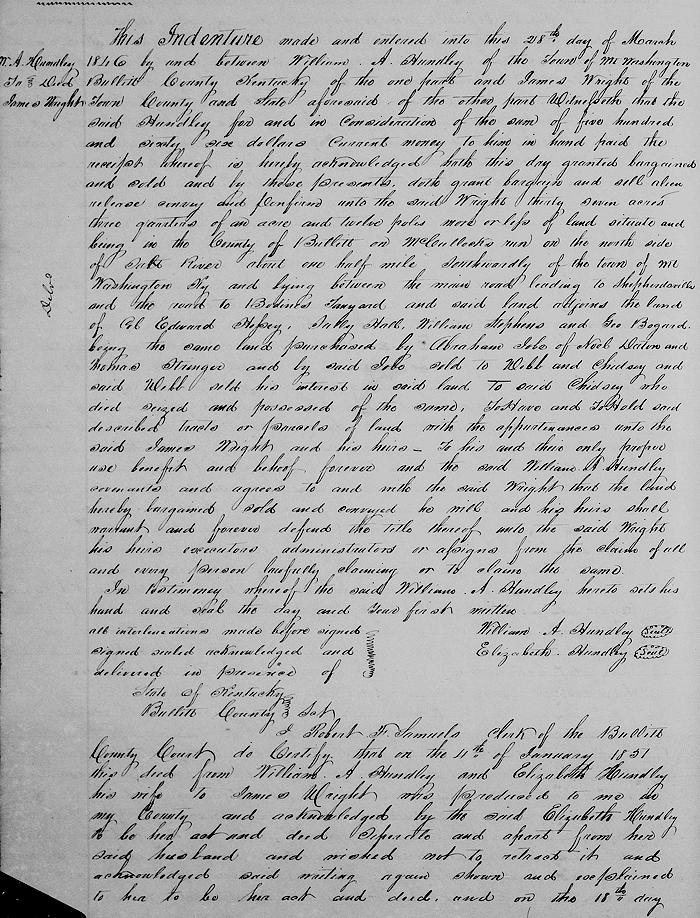 This Indenture made and entered into this 28th day of March
W. A. Hundley
To Deed
James Wright
1846 by and between William A Hundley of the Town of Mt Washington
Bullitt County Kentucky of the one part and James Wright of the
Town County and State aforesaid of the other part Witnesseth that the
said Hundley for and in consideration of the sum of five hundred
and sixty six dollars current money to him in hand paid the
receipt whereof is hereby acknowledged hath this day granted bargained
and sold and by these presents, doth grant bargain and sell alien
release convey and confirm unto the said Wright thirty seven acres
three quarters of an acre and twelve poles more or less of land situate and
being in the County of Bullitt on McCullocks run on the north side
of Salt River about one half mile Southwardly of the town of Mt
Washington Ky and lying between the main road leading to Shepherdsville
Delvd
and the road to Bodines Tanyard and said land adjoins the land
of Col Edward Hessey, Sally Hall, William Stephens and Geo Bogard.
being the same land purchased by Abraham of Noel and
Thomas Stringer and by said sold to Webb and Chidsey and
said Webb sold his interest in said land to said Chidsey who
died seized and possessed of the same, To Have and To Hold said
described tracts or parcels of land with the appurtinances unto the
said James Wright and his heirs - To his and their only proper
use benefit and behoof forever and the said William A Hundley
covenants and agrees to and with the said Wright that the land
hereby bargained sold and conveyed he will and his heirs shall
warrant and forever defend the title thereof unto the said Wright
his heirs executors administrators or assigns from the claim of all
and every person lawfully claiming or to claim the same.
In testimony whereof the said William A. Hundley hereto sets his
hand and seal the day and year first written
all interlineations made before signed
signed sealed acknowledged and
delivered in presence of
William A. Hundley Seal
Elizabeth Hundley Seal
State of Kentucky
Bullitt County Sct
I Robert F. Samuels clerk of the Bullitt
County Court do Certify that on the 4th of January 1851
this deed from William A Hundley and Elizabeth Hundley
his wife to James Wright was produced to me in
my County and acknowledged by the said Elizabeth Hundley
to be her act and deed Seperate and apart from her
said husband and wished not to retract it and
acknowledged said writing again shown and explained
to her to be her act and deed. and on the 18th day